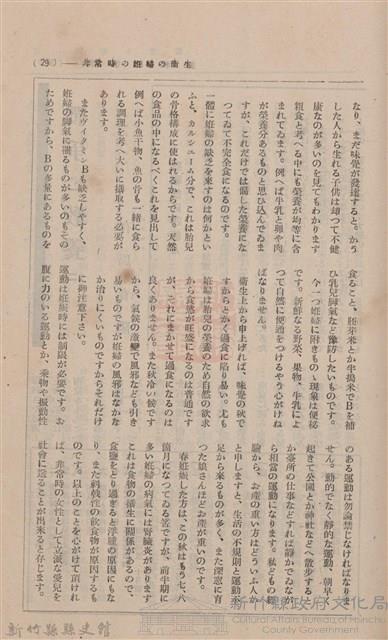 (29)——非常時の妊婦の衞生
なり、まだ味覺が發達すると。かう
した人から生れる子供は却つて不健
康なのが多いのを見てもわかります
粗食と考へる中にも榮養が均等に含
まれてゐます。例へば牛乳と卵や肉
が榮養分あるものと思ひ込んでゐま
すが、これだけでは偏した榮養にな
つてゐて不完全食になるのです。
一體に妊婦の缺乏を來すのは何かとい
ふと、カルシュームで、これは胎兒
の骨格構成に使はれるからです。天然
の食品の中になるべくこれを見出して
例へば小魚干物、魚の骨も一緒に食ら
れる調理を考へ大いに攝取する必要が
あります。
またヴィタミンBも缺乏しやすく、
妊婦の脚氣に罹るものが多いのもその
ためですから、Bの多量にあるものを
食ること、胚芽米とか半搗米でBを補
ひ乳兒脚氣など豫防したいものです。
今一つ妊婦に附きもの〻現象は便秘
です。新鮮なる野菜、果物、牛乳によ
つて自然に便通をつけるやう心がけね
ばなりません。
衞生上から申上げれば、味覺の秋で
すからとかく過食に陷り易い。尤も
妊婦は胎兒の榮養のため自然の欲求
から食慾が旺盛になるのは普通です
が、それにまかせて過食になるのは
良くありません。また秋冷の候です
から、氣候の激變で風邪なども引き
易いものですが妊婦の風邪はなかな
か治りにくいものですからそれだけ
に御注意下さい。
運動は妊娠時には制限が必要です。お
腹に力のいる運動とか、乘物や振動性
のある運動は勿論禁じなければなりま
せん。動的でなく靜的な運動、朝早く
起きて公園とか神社などへ散步すると
か臺所の仕事などすれば靜かでゐなが
ら相當の運動になります。私どもの經
驗から、お產の重い方はどういふ人か
と申しますと、生活の不規則と運動不
足から來るものが多く、また深窓に育
つた娘さんほどお產が重いのです。
春妊娠した方は、この秋はもう七、八
箇月になつてゐる筈ですが、前半期に
多い妊婦の病氣には腎臟炎があります
これは食物の衞生に關係があるので、
食鹽をとり過ぎると浮腫の原因にもな
り、また刺戟性の飲食物が原因するも
のです。以上のことを心がけて頂けれ
ば、非常時の女性として立派な愛兒を
社會に送ることが出來ると存じます。
新竹縣縣史館
新竹縣政府文化局
Cultural Affairs Bureau of Hsinchu
County Government